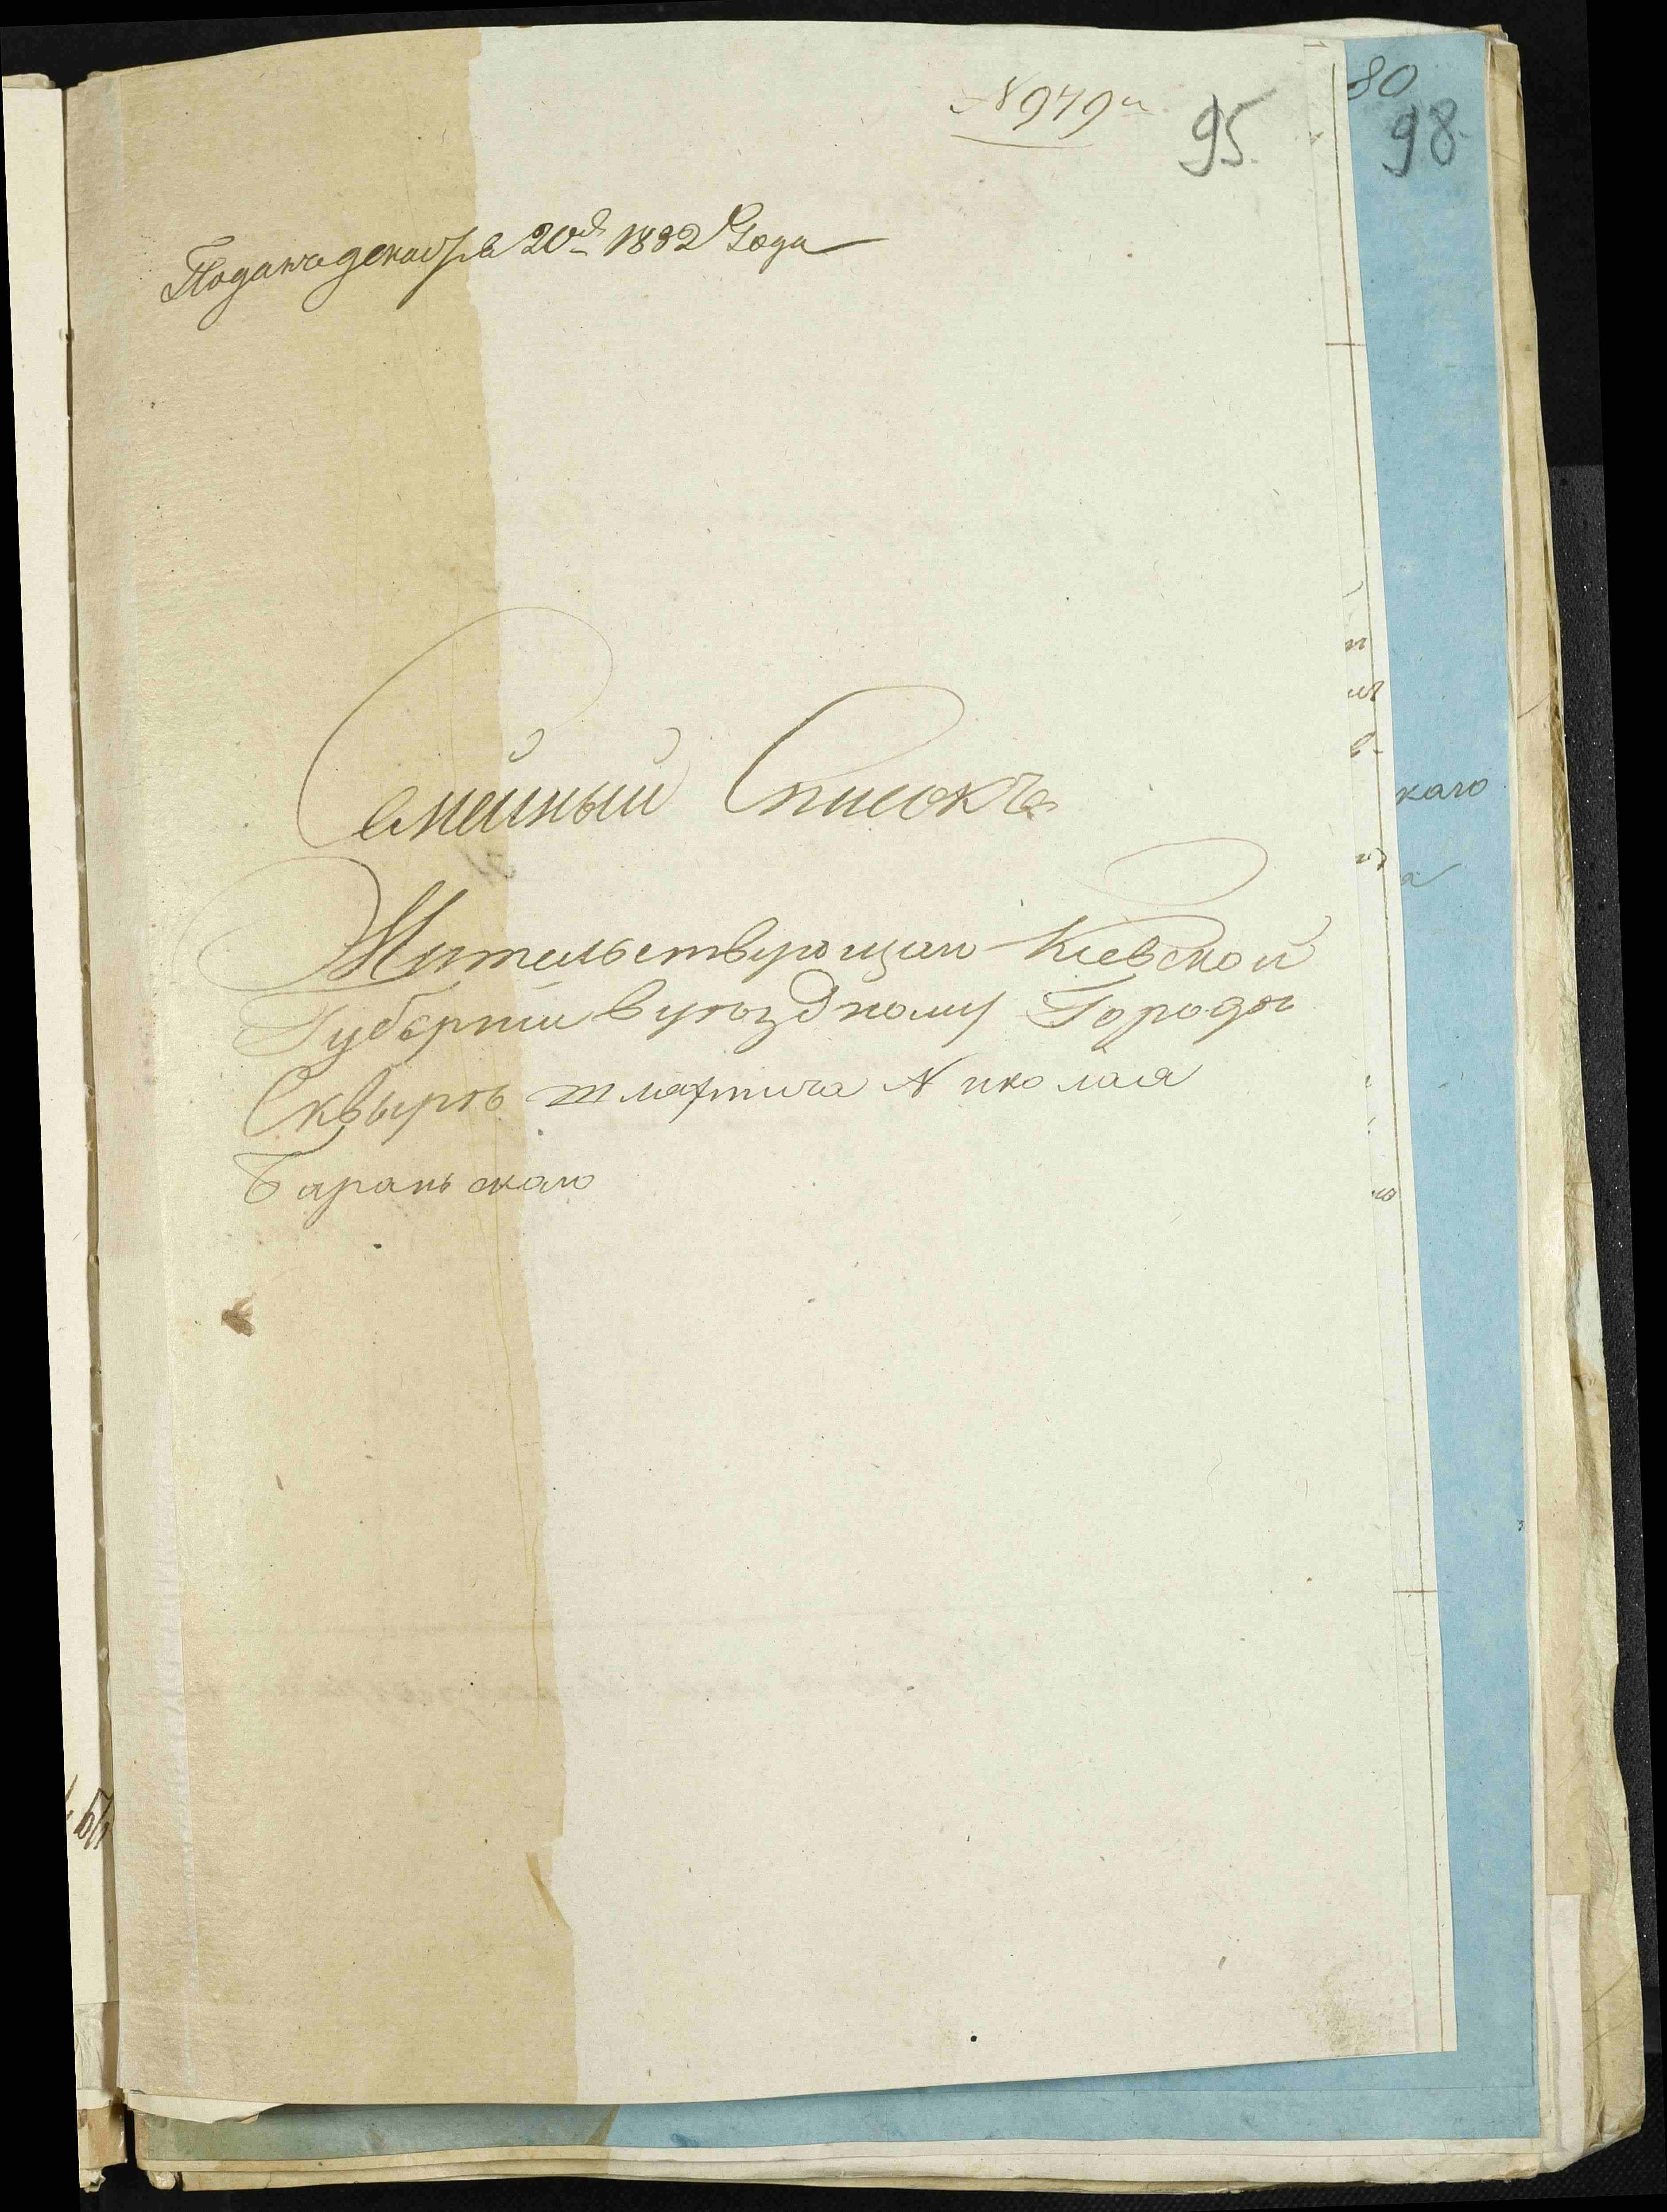 № 979й
95.
80
98
Подана декабря 20го 1832 Года
Семейный Списокъ
Жительствующаго Киевской
Губернии в уѣздному Городѣ
Сквырѣ шляхтича Николая
Бараньскаго
каго
а